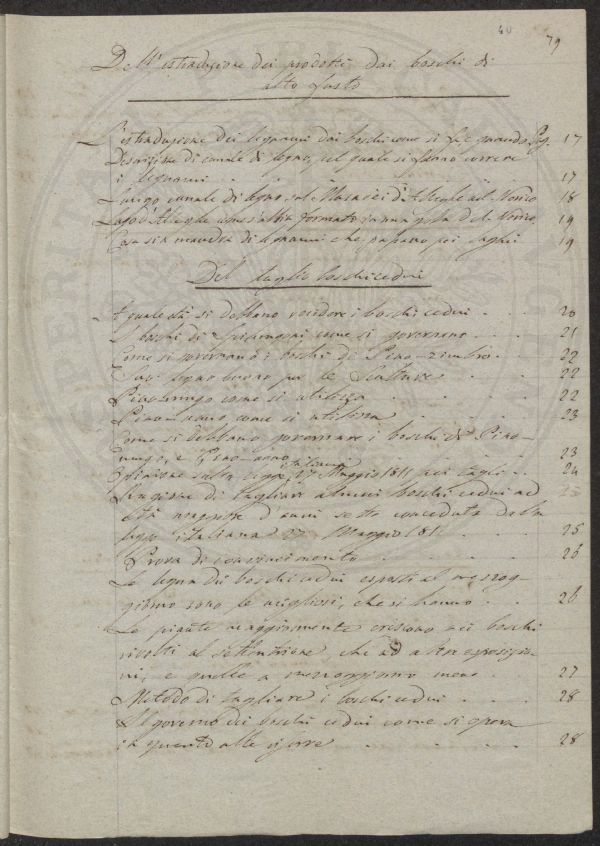 40
79
Dell'estraduzione dei prodotti dai boschi di
alto fusto
L'estraduzione dei legnami dai boschi come si fà e quando Pag. 17
Descrizione di canale di legno, sul quale si fanno correre
i legnami 17
Lungo canale di legno sul 18
Lago d' come s'abbia formato 19
Cosa sia di legnami che passano pei laghi 19
Del taglio boschi cedui
A quale età si debbano vendere i boschi cedui 20
I boschi di come si governano 21
Come si governano i boschi di Pino-zimbro 22
Suo legno buono per le sculture 22
Pino-mugo come si utilizza 22
Pino-nano come si utilizza 23
Come si debbano governare i boschi di Pino-
mugo, e Pino-nano 23
Opinione sulla legge italiana 27 Maggio 1811 pei tagli 24
Ragione di tagliare alcuni boschi cedui ad
età maggiore d'anni sette conceduta dalla
legge italiana 27 Maggio 1811 25
Prova di 26
La legna dei boschi cedui esposti al mezzog-
giorno sono le migliori, che si hanno 26
Le piante maggiormente crescono nei boschi
rivolti al settentrione, che ad altre esposizio-
ni, e quelle a mezzogiorno meno 27
Metodo di tagliare i boschi cedui 28
Il governo dei boschi cedui come si opera
in quanto alle riserve 28